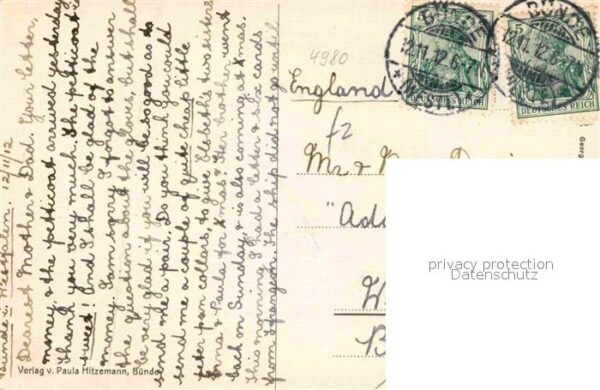 Bünde i. Westfalen. 12/11/12
Dearest Mother & Dad. Your letter,
money, & the petticoat arrived yesterday
thank you very much. The petticoat is
sweet! And I shall be glad of the
money. I am sorry I forgot to answer
the question about the gloves, but I shall
be very glad if you will be so good as to
send me a pair. Do you think you could
send me a couple of quite cheap little
Peter pan collars, to give Elsbeth's two sisters
Anna & Paula for Xmas? Her brother went
back on Sunday, & is also coming at Xmas.
This morning I had a letter & six cards
from The ship did not go until
Verlag v. Paula Hitzemann, Bünde
4980
England
fz
Mr &
"Ado
W
B
BÜNDE
12.11.12.6-7
* (WESTF.)
BÜNDE
12.11.12.6-7
DEUTSCHES REICH
DEUTSCHES REICH
5
5
Georg
privacy protection
Datenschutz